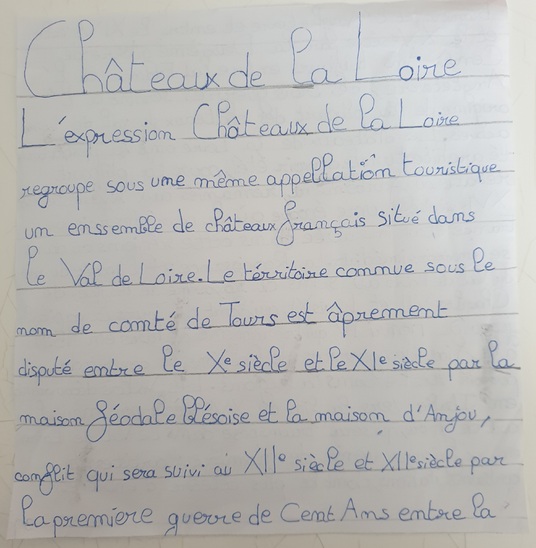 Châteaux de la Loire
L'expression Châteaux de la Loire
regroupe sous une même appellation touristique
un enssemble de châteaux français situé dans
le Val de Loire. Le térritoire connue sous le
nom de comté de Tours est âprement
disputé entre le Xe siècle et le XIe siècle par la
maison féodale blésoise et la maison d'Anjou,
conflit qui sera suivi au XIIe siècle et XIIe siècle par
la premiere guerre de Cent Ans entre la